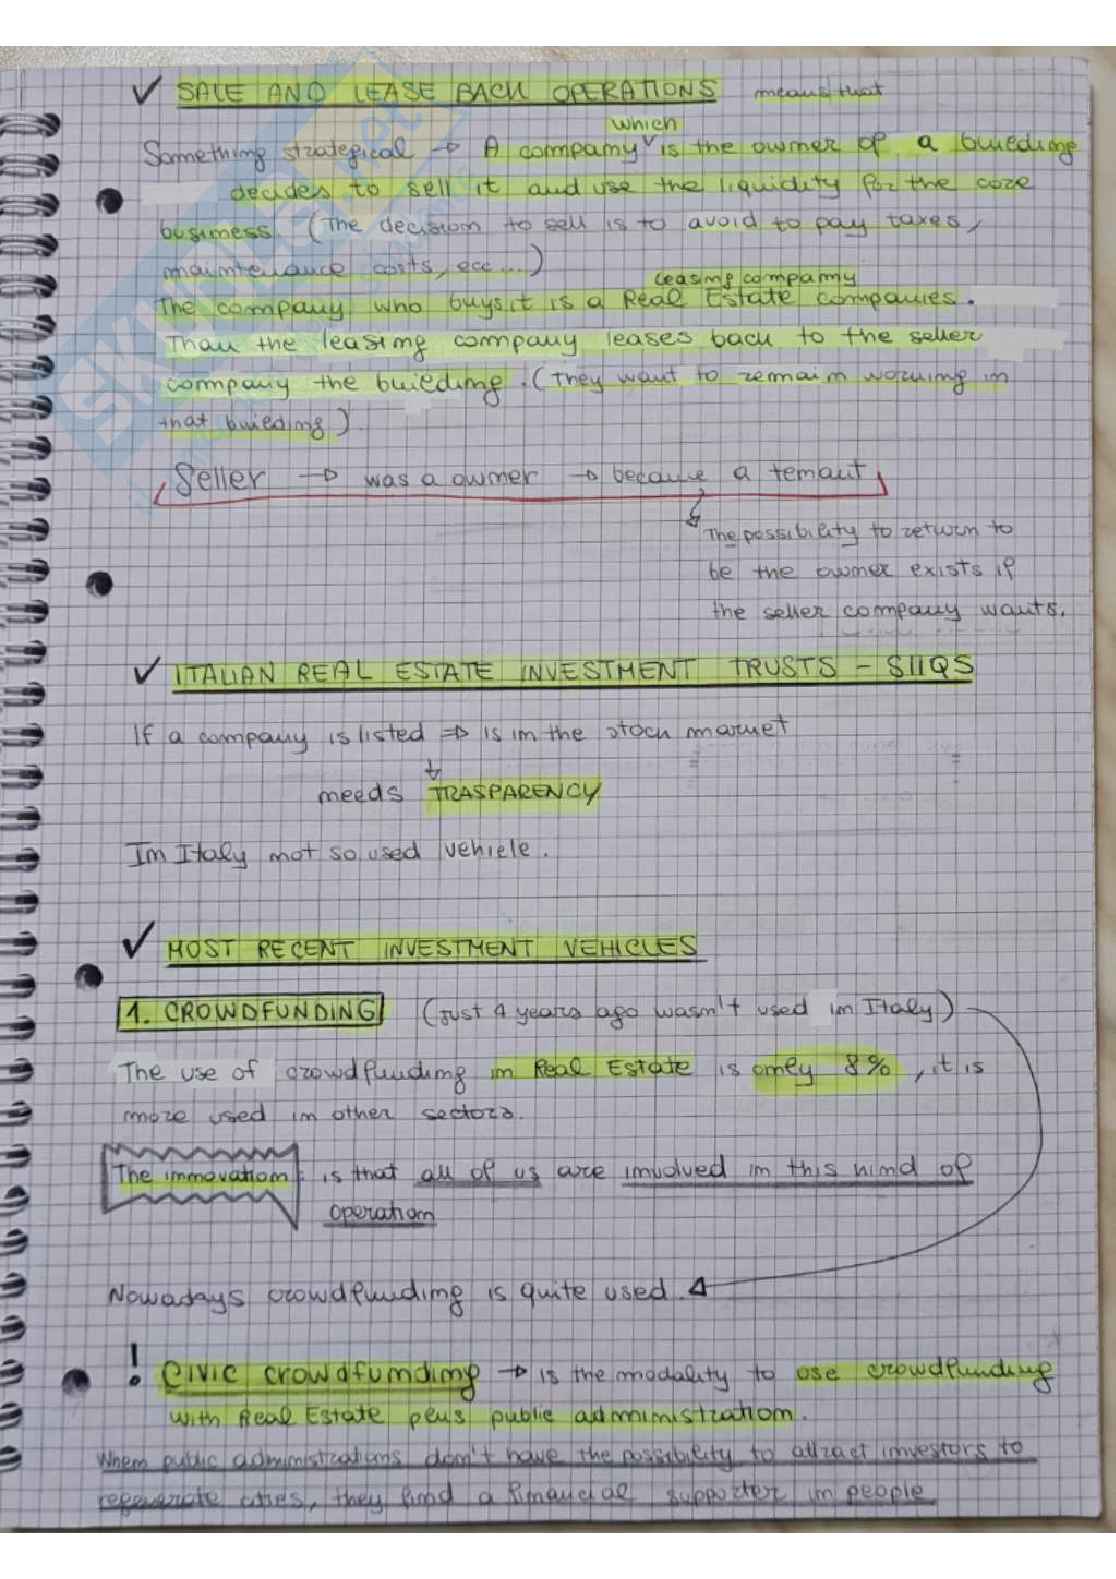 ✓ SALE AND LEASE BACK OPERATIONS means that
which
Something strategical → A company ∨ is the owner of a building
decides to sell it and use the liquidity for the core
business. (The decision to sell is to avoid to pay taxes,
maintenance costs, ecc...)
leasing company
The company who buys it is a Real Estate companies.
Than the leasing company leases back to the seller
company the building. (They want to remain working in
that building)
Seller → was a owner → became a tenant
The possibility to return to
be the owner exists if
the seller company wants.
✓ ITALIAN REAL ESTATE INVESTMENT TRUSTS - SIIQS
If a company is listed ⇒ is in the stock market
needs TRASPARENCY
In Italy not so used vehicle.
✓ MOST RECENT INVESTMENT VEHICLES
1. CROWDFUNDING (Just 4 years ago wasn't used in Italy)
The use of crowdfunding in Real Estate is only 8%, it is
more used in other sectors.
The innovation: is that all of us are involved in this kind of
operation
Nowadays crowdfunding is quite used.
! Civic crowdfunding → is the modality to use crowdfunding
with Real Estate plus public administration.
When public administrations don't have the possibility to attract investors to
regenerate cities, they find a financial supporter in people